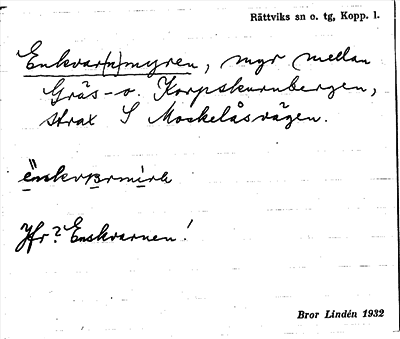 Rättviks sn o. tg, Kopp. l.
Enkvar(n)myren, myr mellan
Gräs- o. Korpskurnbergen,
strax S Moskelåsvägen.
Jfr? Enskvarnen!
Bror Lindén 1932